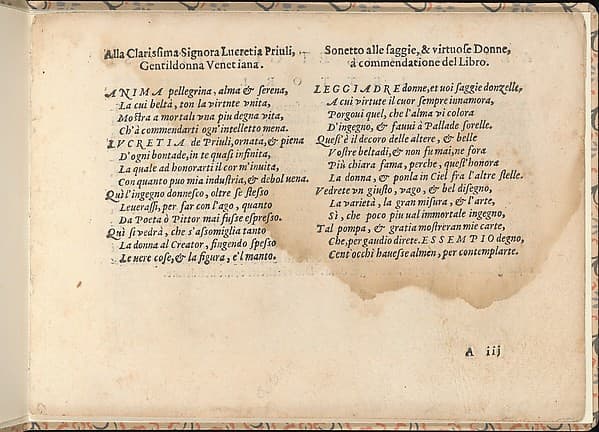 Alla Clarissima Signora Lucretia Priuli,
Gentildonna Venetiana.
ANIMA pellegrina, alma & serena,
La cui beltà, con la virtute vnita,
Mostra a mortali vna piu degna vita,
Ch'à commendarti ogn'intelletto mena.
LVCRETIA de Priuli, ornata, & piena
D'ogni bontade, in te quasi infinita,
La quale ad honorarti il cor m'inuita,
Con quanto puo mia industria, & debol uena.
Quì l'ingegno donnesco, oltre se stesso
Leuerassi, per far con l'ago, quanto
Da Poeta ò Pittor mai fusse espresso.
Quì si vedrà, che s'assomiglia tanto
La donna al Creator, fingendo spesso
Le uere cose, & la figura, e'l manto.
Sonetto alle saggie, & virtuose Donne,
à commendatione del Libro.
LEGGIADRE donne, et uoi saggie donzelle,
A cui virtute il cuor sempre innamora,
Porgoui quel, che l'alma vi colora
D'ingegno, & fauui à Pallade sorelle.
Quest'è il decoro delle altere, & belle
Vostre beltadi, e non fu mai, ne fora
Più chiara fama, perche, quest'honora
La donna, & ponla in Ciel fra l'altre stelle.
Vedrete vn giusto, vago, & bel disegno,
La varietà, la gran misura, & l'arte,
Sì, che poco piu ual immortale ingegno,
Tal pompa, & gratia mostreran mie carte,
Che, per gaudio direte. ESSEMPIO degno,
Cent'occhi hauesse almen, per contemplarte.
A iij